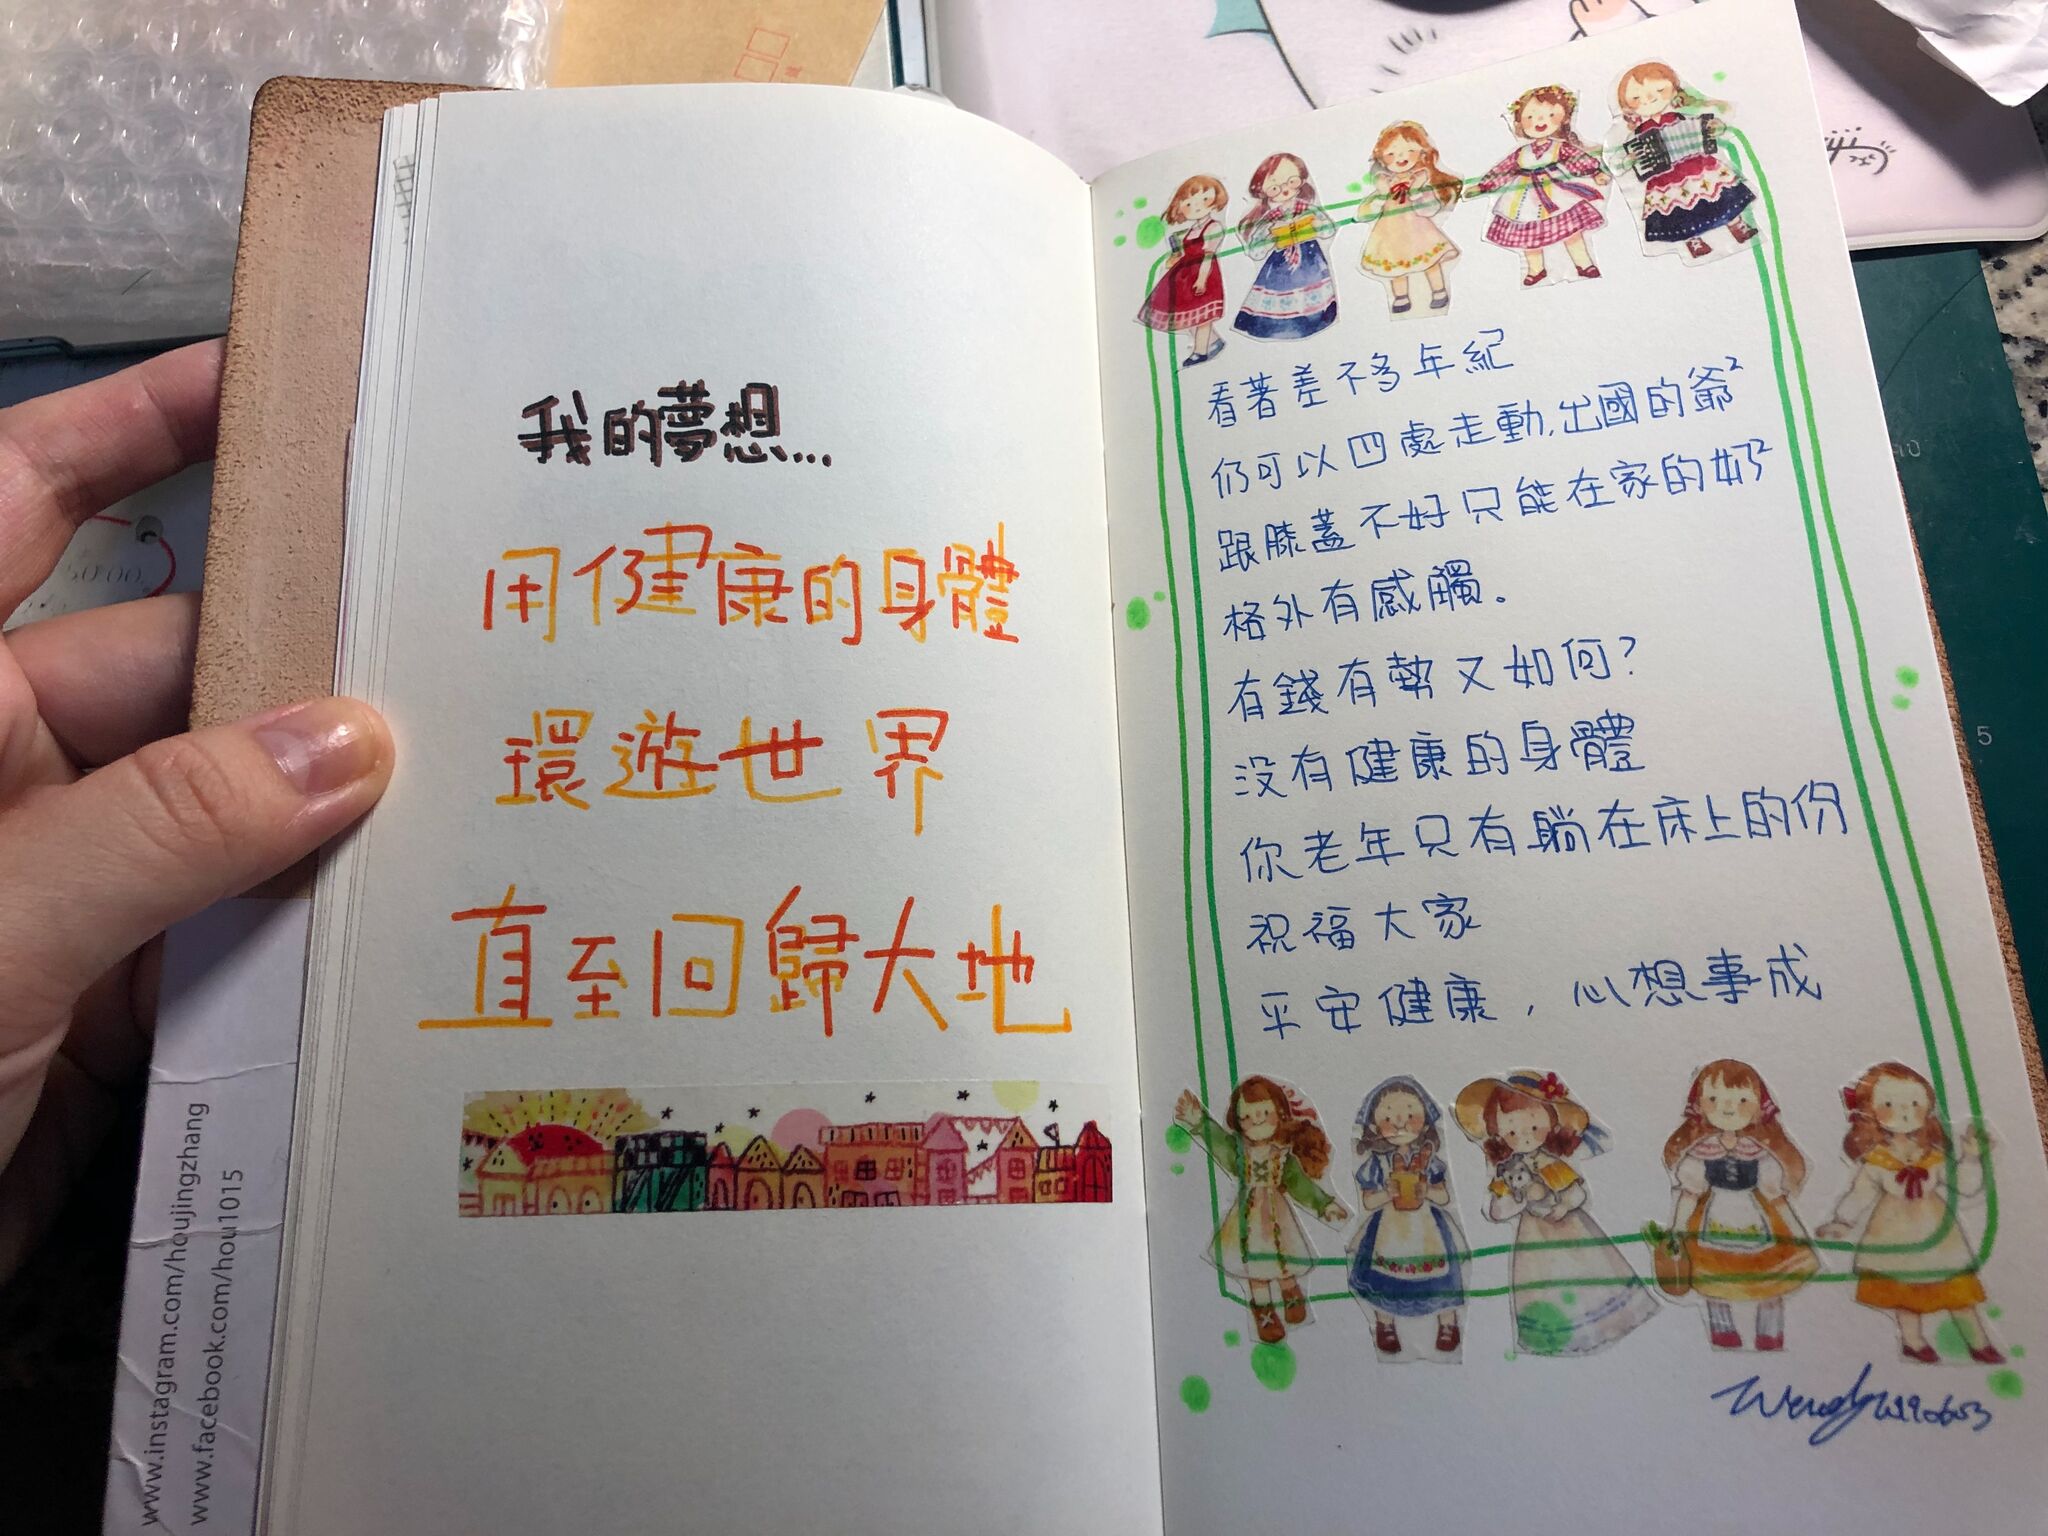 我的夢想...
用健康的身體
環遊世界
直至回歸大地
看著差不多年紀
仍可以四處走動,出國的爺²
跟膝蓋不好只能在家的奶²
格外有感觸。
有錢有勢又如何?
沒有健康的身體
你老年只有躺在床上的份
祝福大家
平安健康,心想事成
Wendy 20190603
www.instagram.com/houjingzhang
www.facebook.com/hou1015
5
50:00